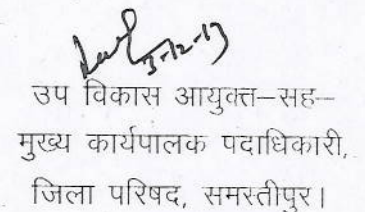 3-12-13
उप विकास आयुक्त–सह–
मुख्य कार्यपालक पदाधिकारी,
जिला परिषद, समस्तीपुर।